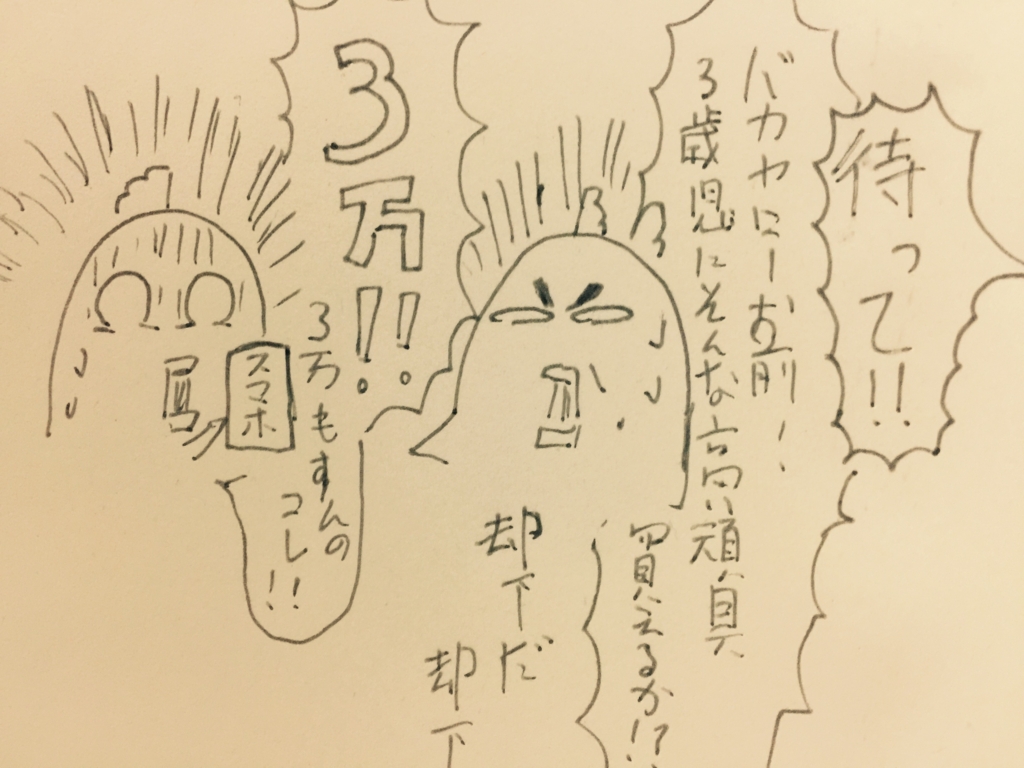 待って!!
バカヤロー お前!
3歳児にそんな高い頑具
買えるか!?
却下だ
却下
3万!!
3万もすんの
コレ!!
スマホ